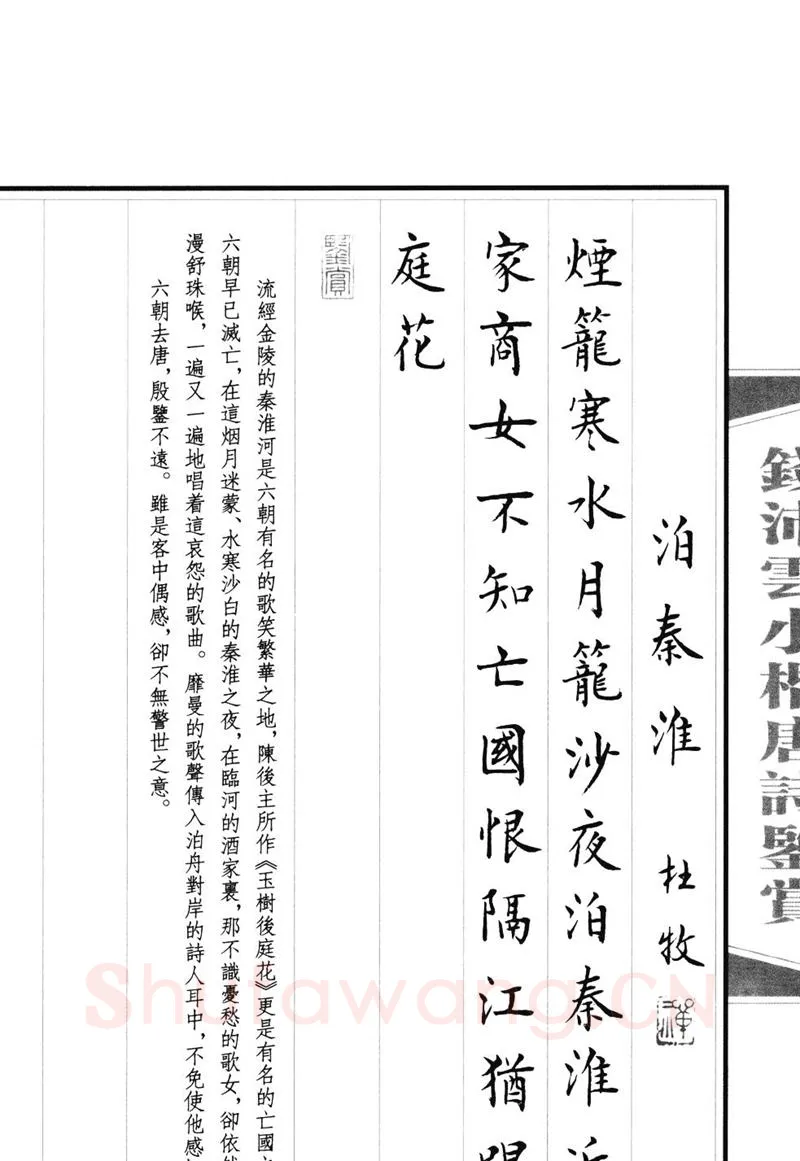 錢沛雲小楷唐詩鑒賞
泊秦淮 杜牧
煙籠寒水月籠沙夜泊秦淮近
家商女不知亡國恨隔江猶唱
庭花
鑒賞
流經金陵的秦淮河是六朝有名的歌笑繁華之地，陳後主所作《玉樹後庭花》更是有名的亡國
六朝早已滅亡，在這烟月迷蒙、水寒沙白的秦淮之夜，在臨河的酒家裏，那不識憂愁的歌女，卻依然
漫舒珠喉，一遍又一遍地唱着這哀怨的歌曲。靡曼的歌聲傳入泊舟對岸的詩人耳中，不免使他感
六朝去唐，殷鑒不遠。雖是客中偶感，卻不無警世之意。
Shufawang.CN